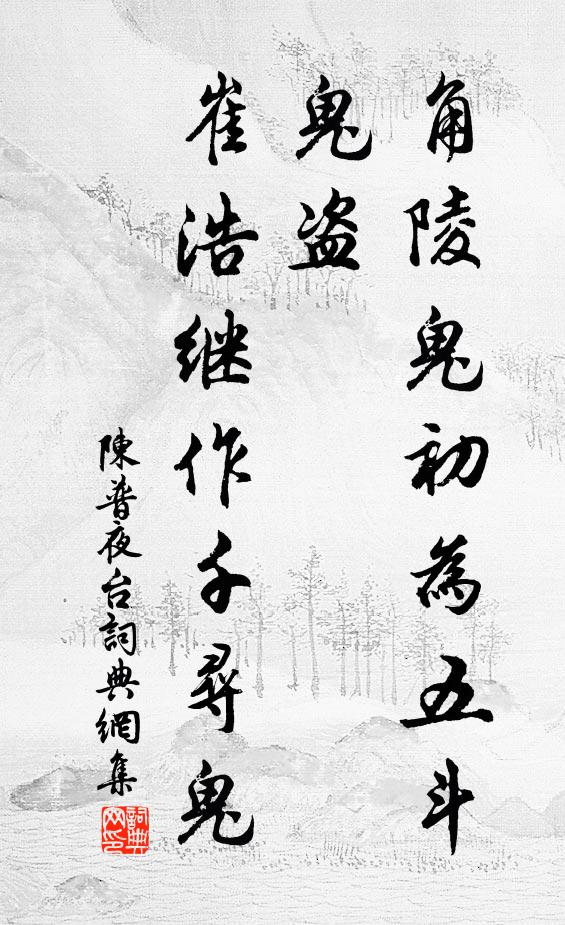 角陵鬼初為五斗
鬼盗
崔浩继作千尋鬼
陳普夜台詞典網集
詞典
网印